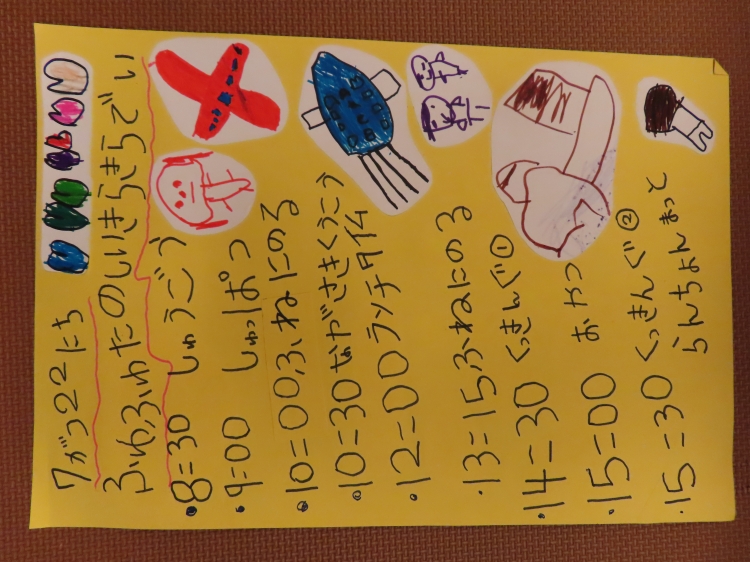 7がつ22にち
ふわふわたのしいきらきらでい
・8=30 しゅうごう
・9=00 しゅっぱつ
・10=00ふねにのる
・10=30ながさきくうこう
・12=00ランチタイム
・13=15ふねにのる
・14=30 くっきんぐ①
・15=00 おやつ
・15=30 くっきんぐ②
らんちょんまっと